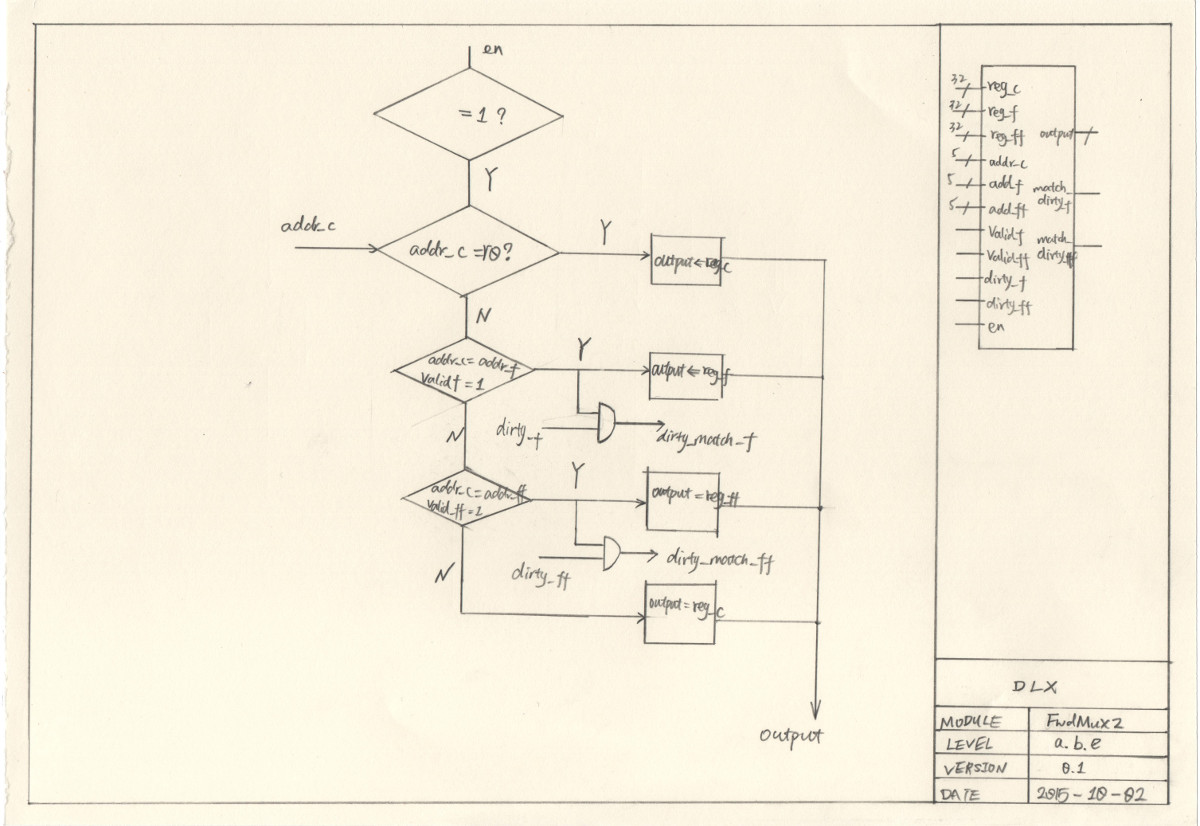 en
= 1 ?
Y
addr_c
addr_c = r0?
Y
output ← reg_c
N
addr_c = addr_f
Valid_f = 1
Y
output ← reg_f
dirty_f
dirty_match_f
N
addr_c = addr_ff
Valid_ff = 1
Y
output = reg_ff
dirty_ff
dirty_match_ff
N
output = reg_c
output
32 reg_c
32 reg_f
32 reg_ff
output
5 addr_c
5 add_f
match_
dirty_f
5 add_ff
Valid_f
match_
dirty_ff
Valid_ff
dirty_f
dirty_ff
en
DLX
MODULE FwdMux2
LEVEL a.b.e
VERSION 0.1
DATE 2015-10-02